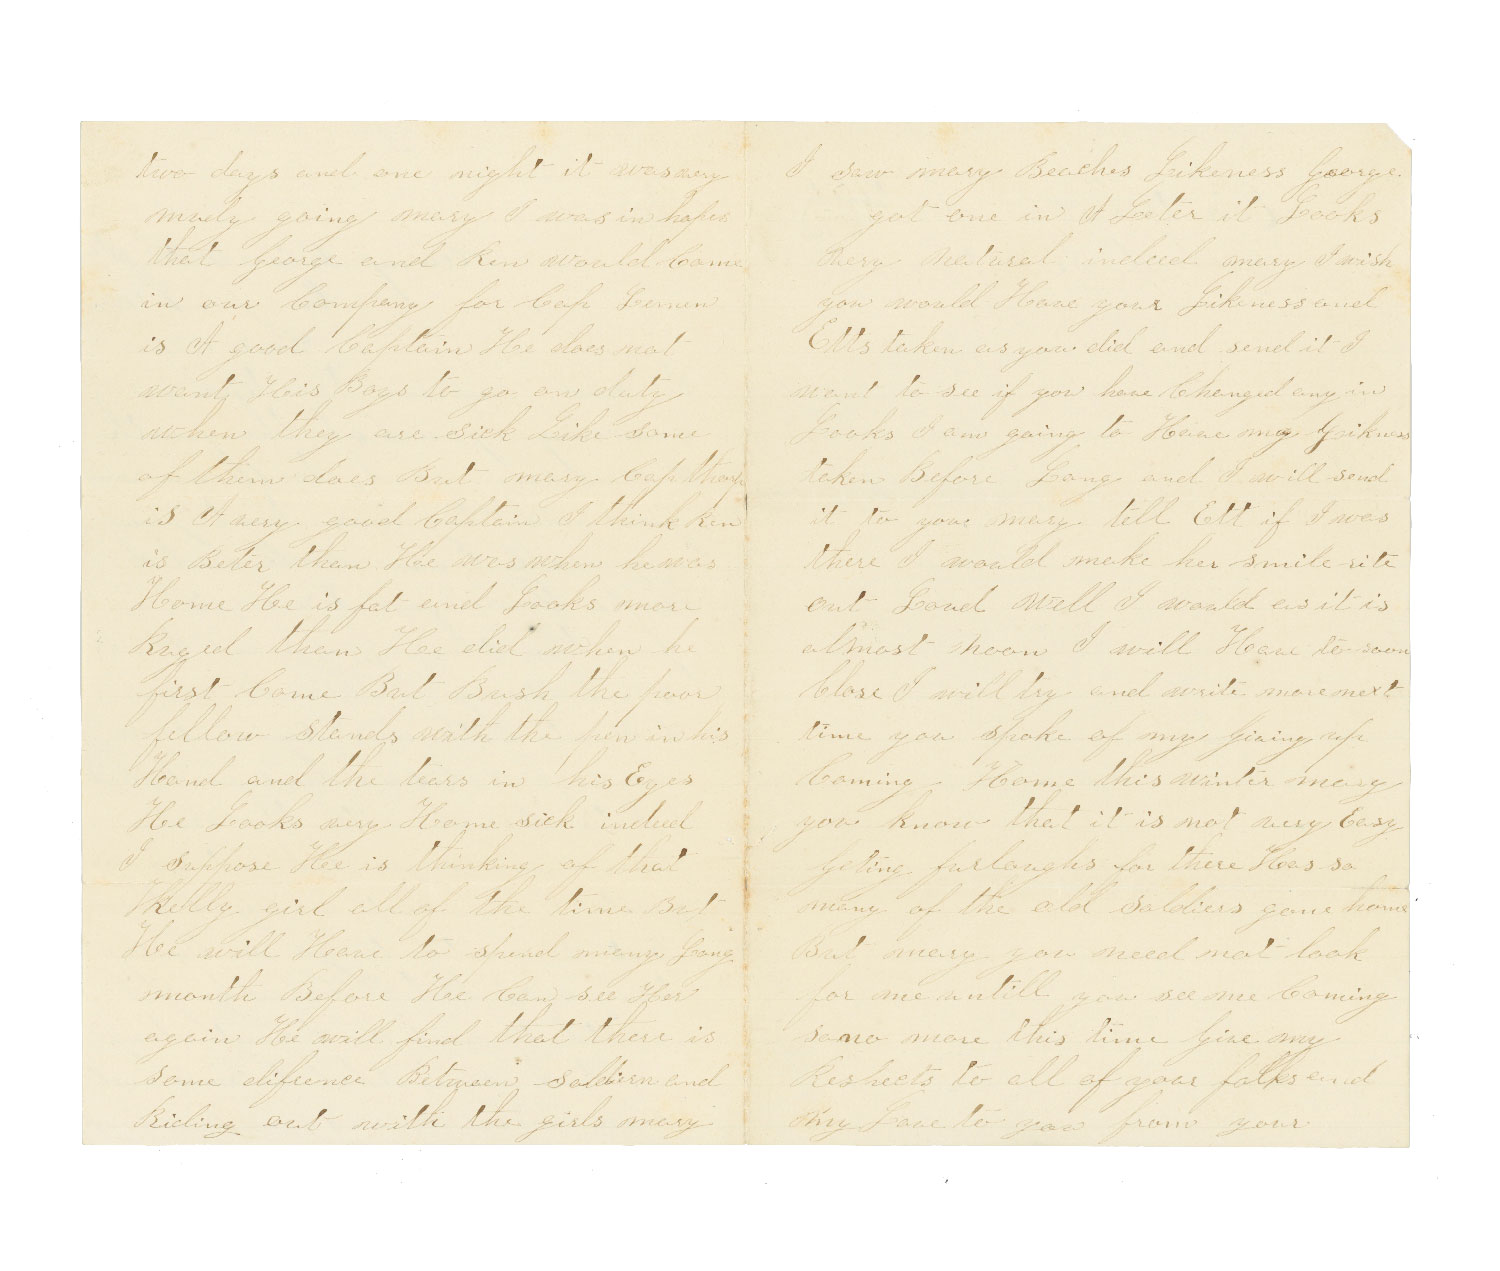 two days and one night it was very
mudy going mary I was in hopes
that George and Ren would Come
in our Company for Cap Lemen
is A good Captain He does not
want His Boys to go on duty
when they are sick Like some
of them does But mary Cap though
is A very good Captain I think Ren
is Beter than He was when he was
Home He is fat and Looks more
Ruged than He did when he
first Come But Bush the poor
fellow stands with the pen in his
Hand and the tears in his Eyes
He Looks very Home sick indeed
I suppose He is thinking of that
Kelly girl all of the time But
He will Have to spend many Long
month Before He Can see Her
again He will find that there is
some difrence Between soldiern and
Riding out with the girls mary
I saw mary Beaches Likeness George
got one in A Leter it Looks
very natural indeed mary I wish
you would Have your Likeness and
Etts taken as you did and send it I
want to see if you have Changed any in
Looks I am going to Have my Likness
taken Before Long and I will send
it to you mary tell Ett if I was
there I would make her smile rite
out Loud Well I would as it is
almost noon I will Have to soon
Close I will try and write more next
time you spoke of my giving up
Coming Home this winter mary
you know that it is not very Easy
geting furloughs for there Has so
many of the old soldiers gone home
But mary you need not look
for me untill you see me Coming
so no more this time give my
Respects to all of your folks and
my Love to you from your